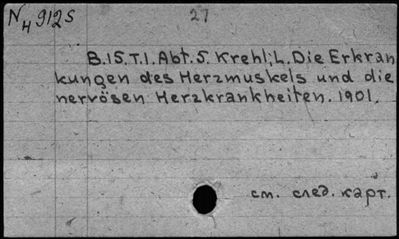 N4 912S
27
B.15.T.1.Abt.5. Krehl,L.Die Erkran
kungen des Herzmuskels und die
nervösen Herzkrankheiten. 1901.
см. след. карт.